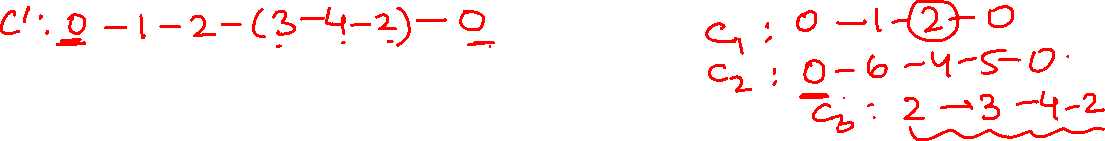 C': 0 - 1 - 2 - (3 - 4 - 2) - 0
C₁ : 0 - 1 - 2 - 0
C₂ : 0 - 6 - 4 - 5 - 0.
C₃ : 2 - 3 - 4 - 2